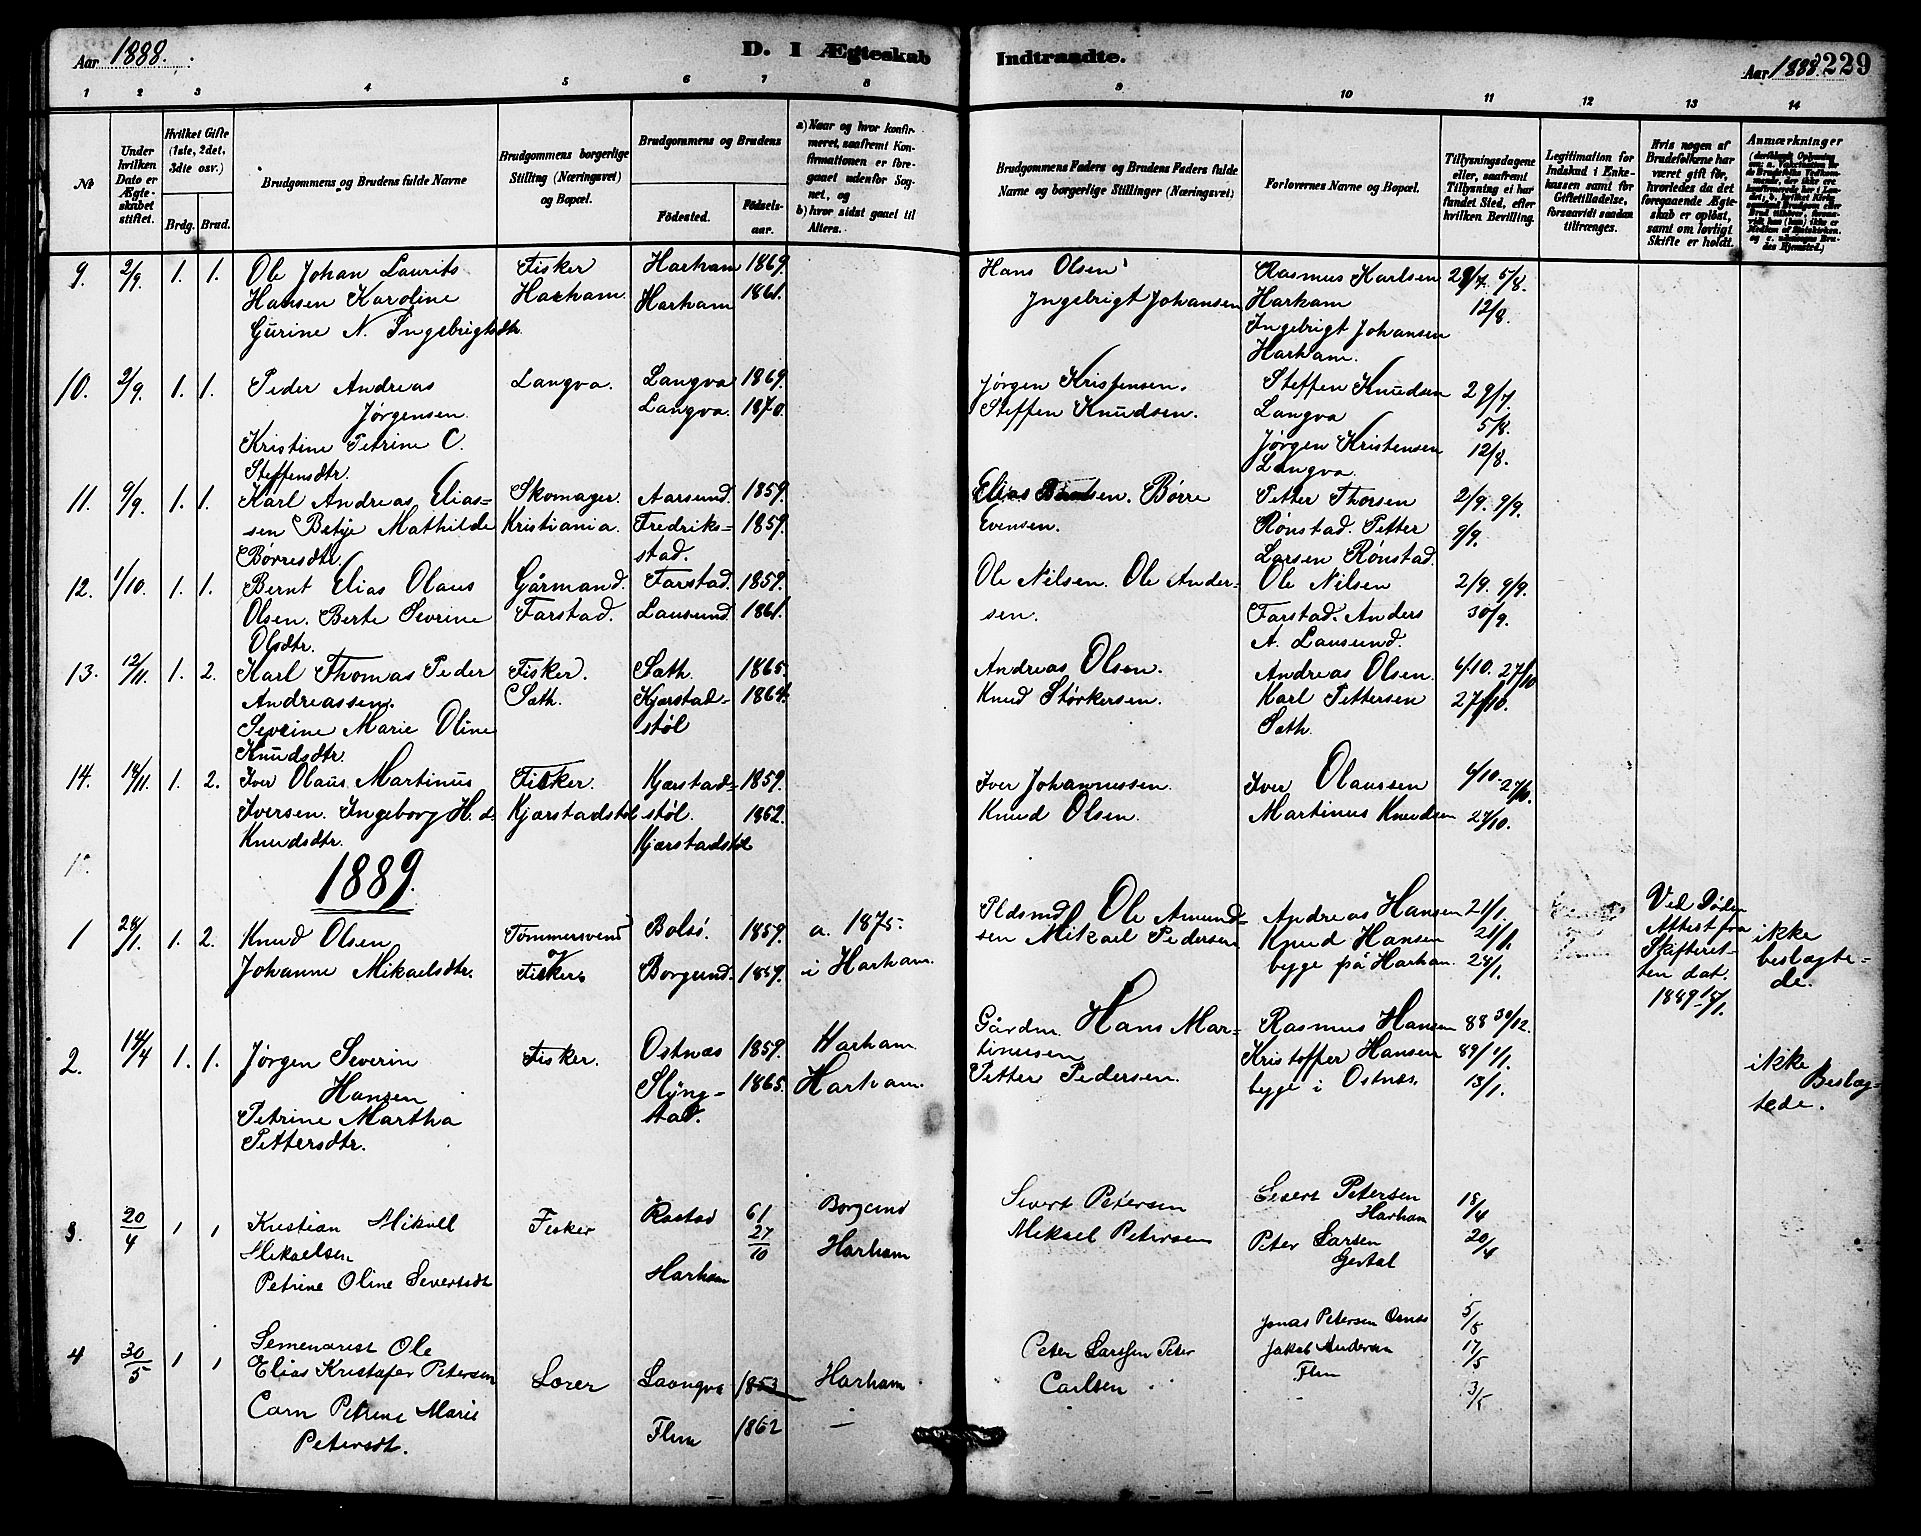 Aar 1888.
D. I Ægteskab Indtraadte.
Aar 1888. 229
1 2 3 4 5 6 7 8 9 10 11 12 13 14
№
Under hvilken Dato er Ægteskabet stiftet.
Hvilket Gifte (1ste, 2det, 3die osv.)
Brdg. Brud.
Brudgommens og Brudens fulde Navne
Brudgommens borgerlige Stilling (Næringsvei) og Bopæl.
Brudgommens og Brudens
Fødested. Fødselsaar.
a) Naar og hvor konfirmeret, saafremt Konfirmationen er foregaaet udenfor Sognet, og
b) hvor sidst gaaet til Alters.
Brudgommens Faders og Brudens Faders fulde Navne og borgerlige Stillinger (Næringsvei)
Forlovernes Navne og Bopæl.
Tillysningsdagene eller, saafremt Tillysning ei har fundet Sted, efter hvilken Bevilling.
Legitimation for Indskud i Enkekassen samt for Giftetilladelse, forsaavidt saadan tiltrænges.
Hvis nogen af Brudefolkene har været gift før, hvorledes da det foregaaende Ægteskab er opløst, samt om lovligt Skifte er holdt.
Anmærkninger
9. 2/9. 1. 1. Ole Johan Laurits Fisker Harham 1869. Hans Olsen Rasmus Karlsen 29/7. 5/8.
Hansen Karoline Harham. Harham 1861. Ingebrigt Johansen Harham 12/8.
Gurine N. Ingebrigtsdtr. Ingebrigt Johansen
Harham.
10. 2/9. 1. 1. Peder Andreas Langva. Langva 1869. Jørgen Kristensen. Steffen Knudsen 29/7.
Jørgensen. Langva. 1870. Steffen Knudsen. Langva 5/8.
Kristine Petrine C. Jørgen Kristensen 12/8.
Steffensdtr. Langva.
11. 9/9. 1. 1. Karl Andreas Elias- Skomager. Aarsund. 1859. Elias Børre Petter Thorsen 2/9. 9/9.
sen Betje Mathilde Kristiania. Fredriks- 1859. Evensen. Rønstad. Petter 9/9.
Børresdtr. stad. Larsen Rønstad.
12. 1/10. 1. 1. Bernt Elias Olaus Gårmand. Farstad. 1859. Ole Nilsen. Ole Ander- Ole Nilsen 2/9. 9/9.
Olsen. Berte Severine Farstad. Lausund. 1861. sen. Farstad. Anders 30/9.
Olsdtr. A. Lausund.
13. 12/11. 1. 2. Karl Thomas Peder Fisker. Sath. 1865. Andreas Olsen. Andreas Olsen. 6/10. 27/10
Andreassen. Sath. Kjærstad- 1864. Knud Størkersen. Karl Pettersen 27/10.
Severine Marie Oline støl Sath.
Knudsdtr.
14. 14/11. 1. 2. Iver Olaus Martinus Fisker. Kjærstad- 1859. Iver Johannessen. Iver Olaussen 6/10. 27/10.
Iversen. Ingeborg H. d. Kjærstadstøl støl. 1862. Knud Olsen. Martinus Knudsen 27/10.
Knudsdtr. Kjærstadstøl
1889.
1 28/1. 1. 2. Knud Olsen Tømmersvend Bolsø. 1859. a. 1875. Pldsmd. Ole Amund- Andreas Hansen 21/1. Ved Døden ikke
Johanne Mikaelsdtr. og Fisker Borgund. 1859. i Harham. sen Mikael Pedersen Knud Hansen 21/1. Attest fra beslægte-
begge på Harham. 24/1. Skifteret- de.
ten dat.
1889 15/1.
2. 14/4 1. 1. Jørgen Severin Fisker. Ostnæs 1859. Harham Gårdm. Hans Mar- Rasmus Hansen 88 30/12. ikke
Hansen Slyng- 1865. Harham. tinusen Kristoffer Hansen 89/ 1/1. Beslæg-
Petrine Martha stad. Petter Pedersen. begge i Ostnæs. 13/1. tede.
Pettersdtr.
3. 20/4 1 1 Kristian Mikael Fisker Rastad 61 Borgund Sivert Petersen Sivert Petersen 18/4
Mikaelsen 27/10 Harham Mikael Petersen Harham
Petrine Oline Sivertsdt Harham Peter Larsen 20/4
Gjertal
4 30/5 1 1 Semenarist Ole Jonas Petersen 5/5
Elias Kristofer Petersen Lærer Laangva 1853 Harham Peter Larssen Peter Jakob Andersen 17/5
Carn Petrine Marie Flem 1862 — Carlsen Flem 3/5
Petersdt.